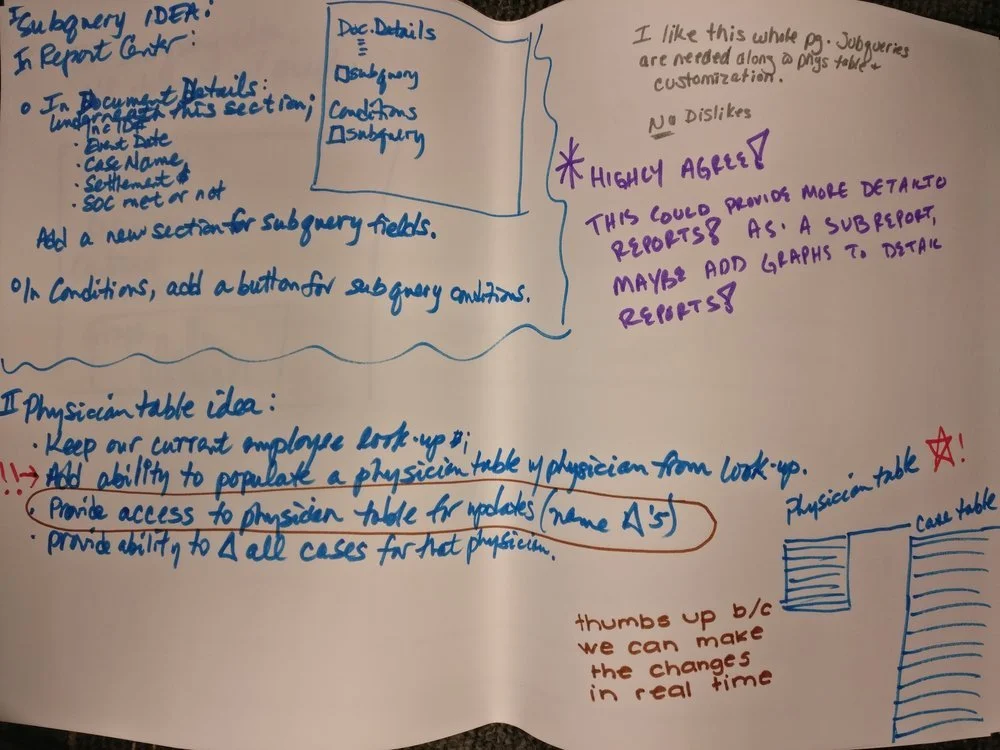 I Subquery IDEA:
In Report Center:
o In Document Details:
Underneath this section;
Inc ID#
· Event Date
· Case Name
· Settlement $
· SOC met or not
Add a new section for subquery fields.
o In Conditions, add a button for subquery conditions.
Doc. Details
□ subquery
Conditions
□ subquery
I like this whole pg. Subqueries
are needed along w phys table +
customization.
No Dislikes
* HIGHLY AGREE!
THIS COULD PROVIDE MORE DETAIL TO
REPORTS! AS A SUBREPORT,
MAYBE ADD GRAPHS TO DETAIL
REPORTS!
II Physician table idea:
· Keep our current employee look-up;
!! → Add ability to populate a physician table w physician from look-up.
· Provide access to physician table for updates (name Δ's)
· provide ability to Δ all cases for that physician.
Physician table ☆!
Case table
thumbs up b/c
we can make
the changes
in real time